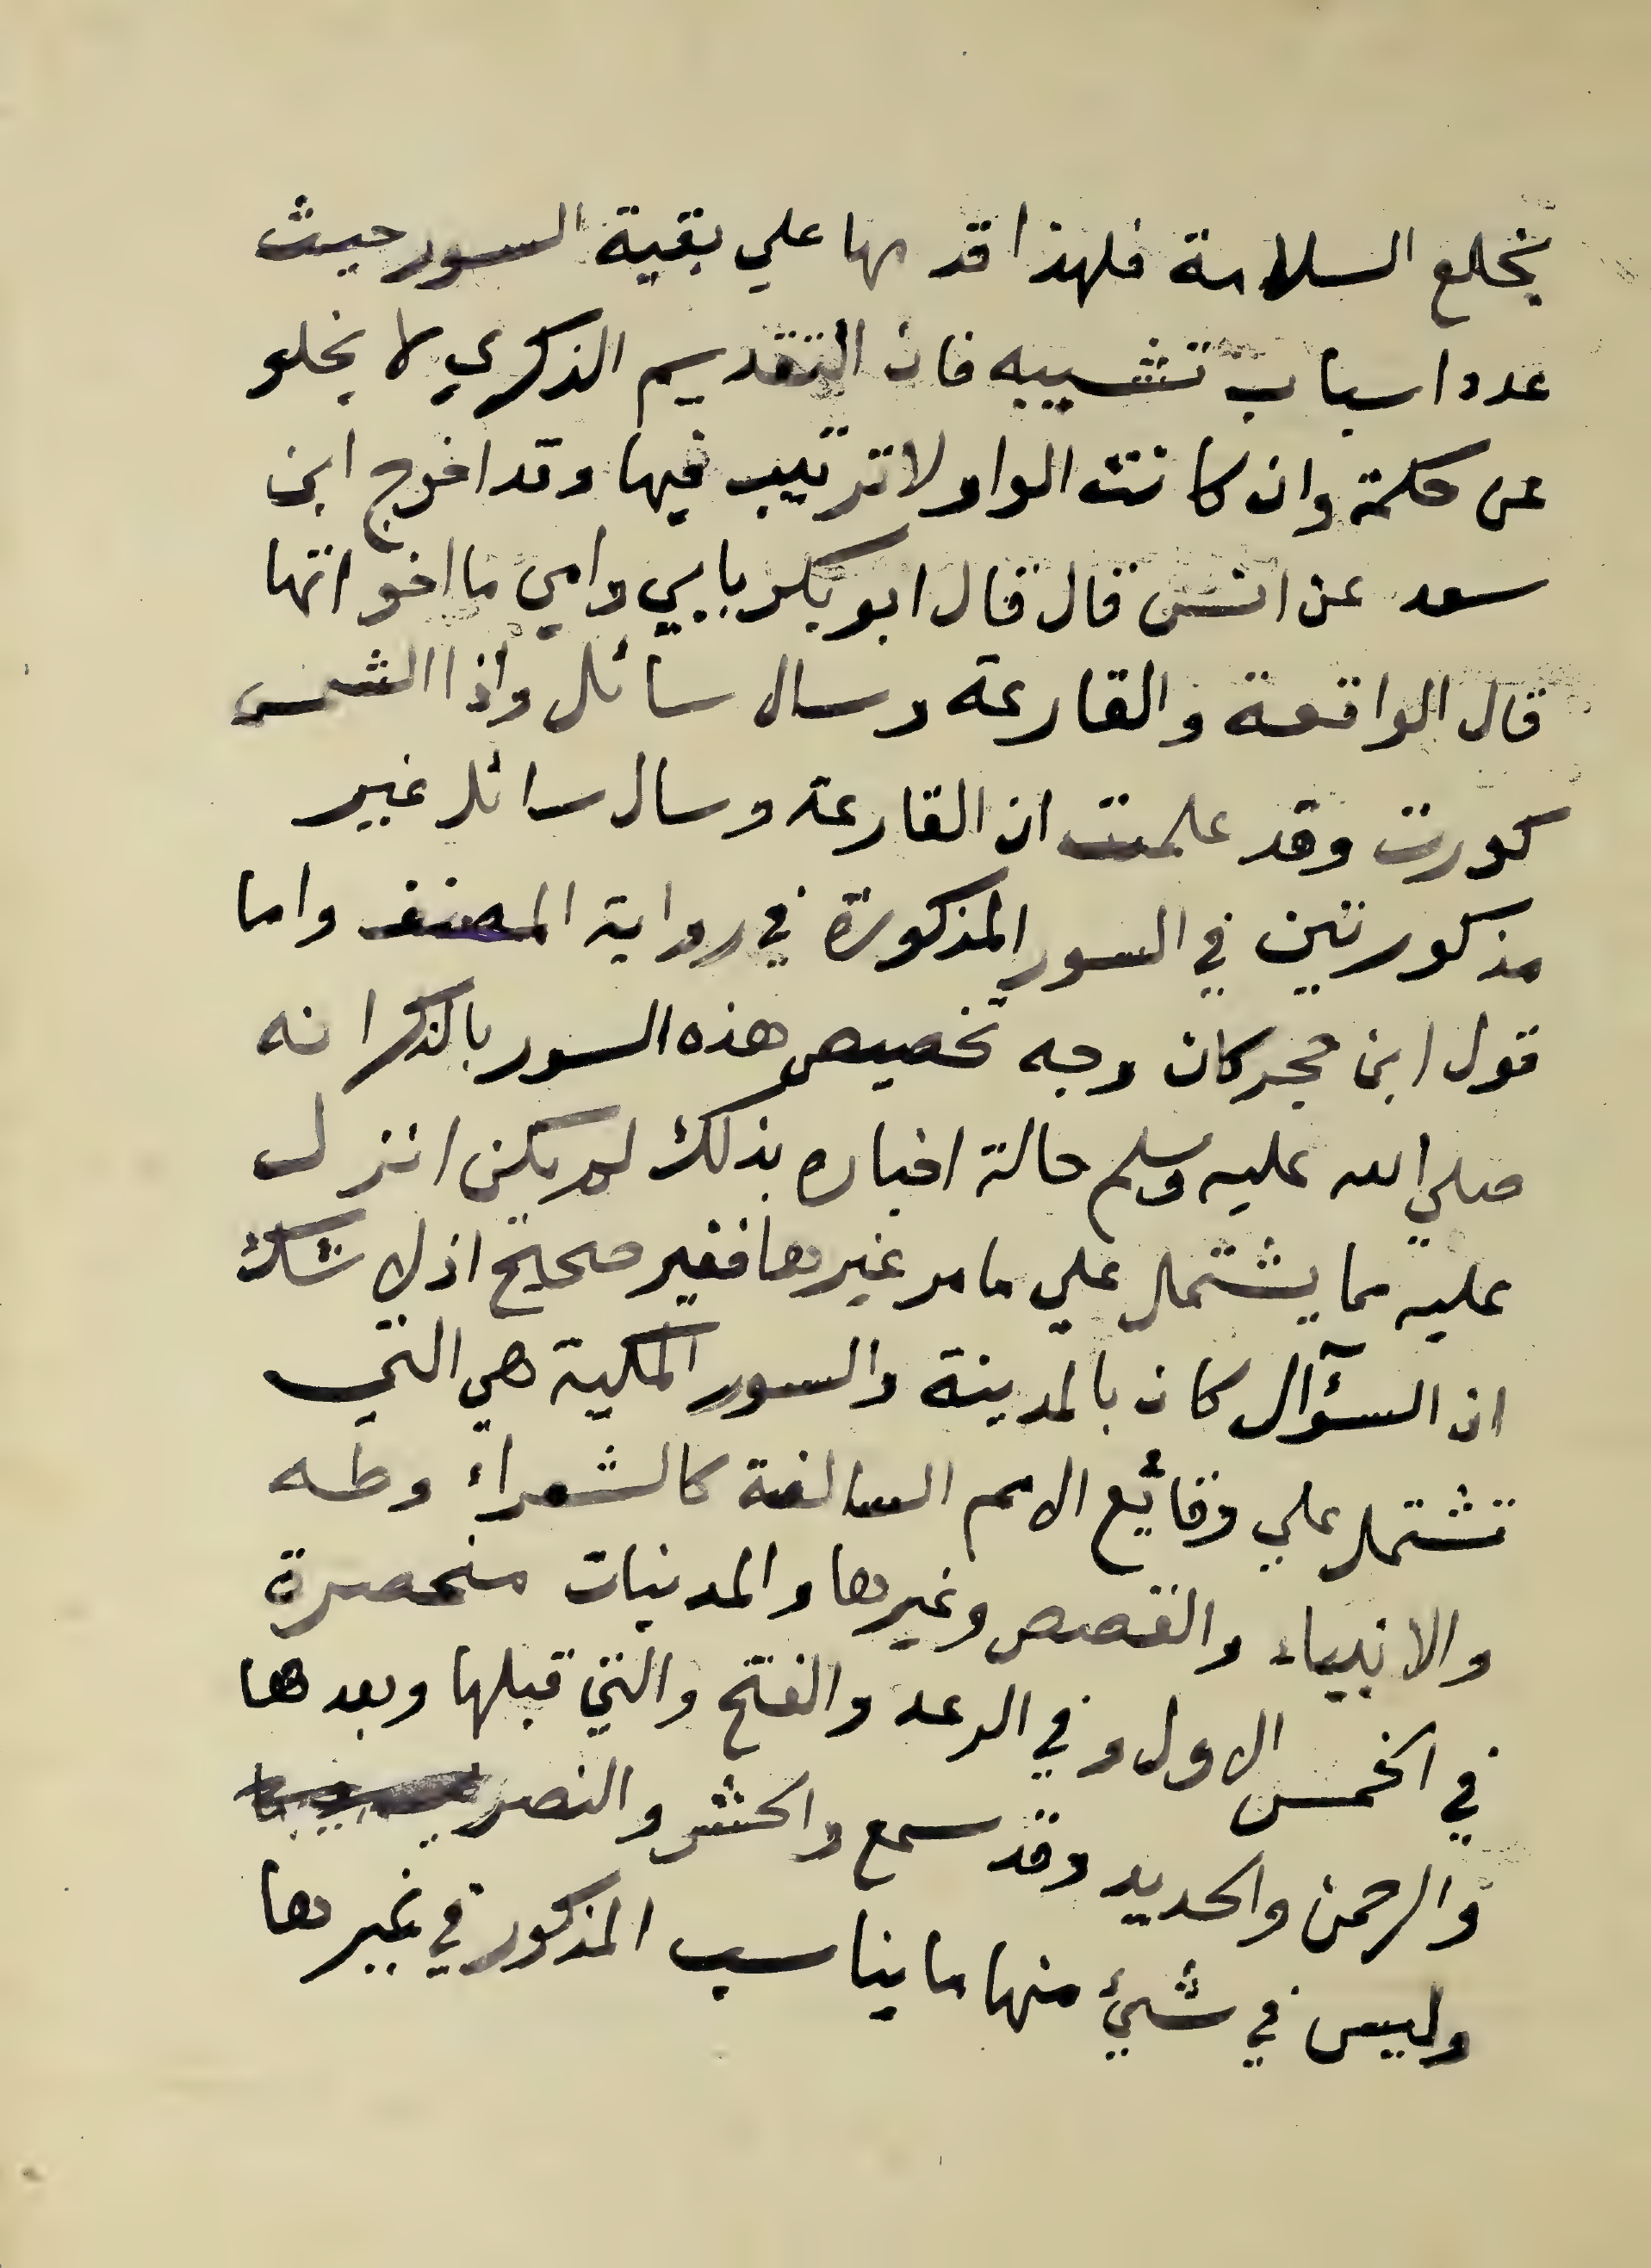 بخلع السلامة فلهذا قدمها علي بقية السور حيث
عدد اسباب تشيبه فان التقديم الذكري لا يخلو
عن حكمة وان كانت الواو لا ترتيب فيها وقد اخرج ابن
سعد عن انس قال قال ابو بكر بابي وامي ما اخواتها
قال الواقعة والقارعة وسال سائل واذا الشمس
كورت وقد علمت ان القارعة وسال سائل غير
مذكورتين في السور المذكورة في رواية المصنف واما
قول ابن حجر كان وجه تخصيص هذه السور بالذكر انه
صلي الله عليه وسلم حالة اخباره بذلك لم يكن انزل
عليه مما يشتمل علي ما مر غيرها فغير صحيح اذ لا شك
ان السؤآل كان بالمدينة والسور المكية هي التي
تشتمل علي وقائع الامم السالفة كالشعراء وطه
والانبياء والقصص وغيرها والمدنيات منحصرة
في الخمس الاول وفي الرعد والفتح والتي قبلها وبعدها
والرحمن والحديد وقد سمع والحشر والنصر
وليس في شيئ منها ما يناسب المذكور في غيرها